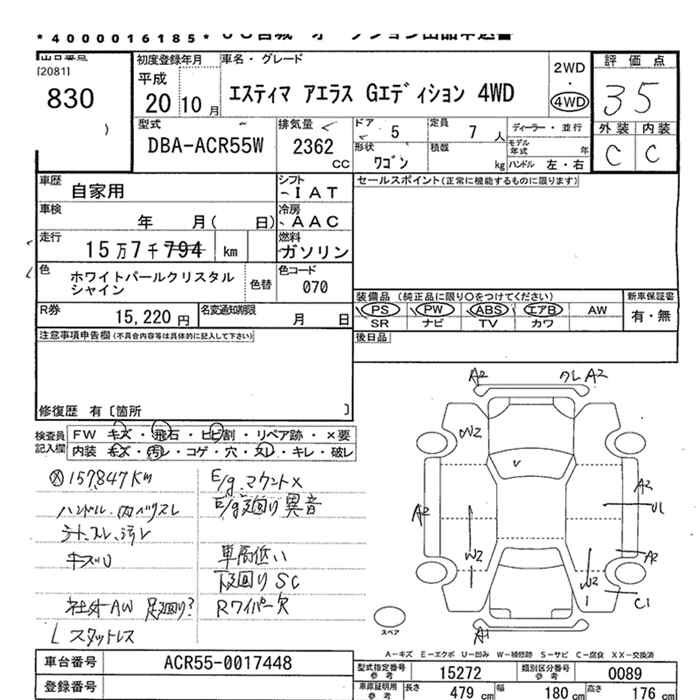 *4000016185*
[2081]
830
初度登録年月
平成
20年10月
車名・グレード
エスティマ アエラス Gエディション 4WD
2WD
・
4WD
評価点
35
外装 内装
C C
型式
DBA-ACR55W
排気量
2362
CC
ドア
5
定員
7人
形状
ワゴン
積載
kg
ディーラー・並行
モデル年式 年
ハンドル 左・右
車歴
自家用
シフト
IAT
車検
年 月( 日)
冷房
AAC
走行
15万7千794
km
燃料
ガソリン
色
ホワイトパールクリスタル
シャイン
色替
色コード
070
R券
15,220円
名変通知期限
月 日
セールスポイント(正常に機能するものに限ります)
装備品 (純正品に限り○をつけてください)
PS PW ABS エアB AW
SR ナビ TV カワ
新車保証書
有・無
後日品
注意事項申告欄(不具合内容等は具体的に記入して下さい)
修復歴 有〔箇所 〕
検査員
記入欄
FW キズ・飛石・ヒビ割・リペア跡・×要
内装 キズ・汚レ・コゲ・穴・スレ・キレ・破レ
157,847Km
ハンドル、内ハリスレ
シート、スレ、汚レ
キズU
社外AW 足廻り?
L スタットレス
E/g.マウント×
E/g廻り異音
車高低い
下廻りSC
Rワイパー欠
A2
クレA2
W2
A2
A2
U1
W2
W2
A2
C1
A1
スペア
A-キズ E-エクボ U-凹み W-補修跡 S-サビ C-腐食 XX-交換済
車台番号
ACR55-0017448
登録番号
型式指定番号
参考
15272
類別区分番号
参考
0089
車庫証明用
参考
長さ
479cm
幅
180cm
高さ
176cm